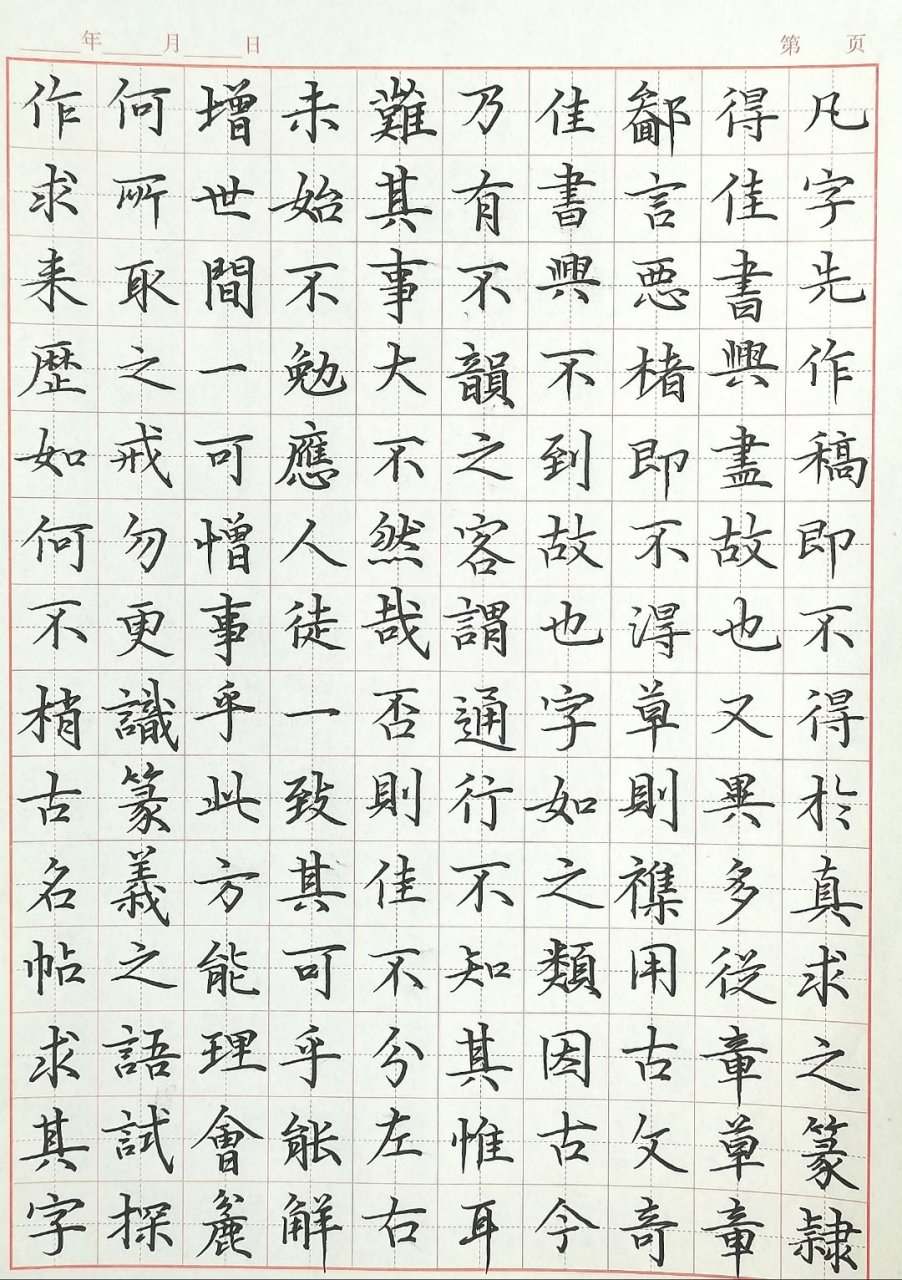 年 月 日 第 页
凡字先作稿即不得於真求之篆隷
得佳書興盡故也又異多從章草章
鄙言惡楮即不淂草則襍用古文奇
佳書興不到故也字如之類因古今
乃有不韻之客謂通行不知其惟耳
難其事大不然哉否則佳不分左右
未始不勉應人徒一致其可乎能解
增世間一可憎事乎此方能理會麄
何所取之戒勿更識篆義之語試探
作求来歷如何不梢古名帖求其字